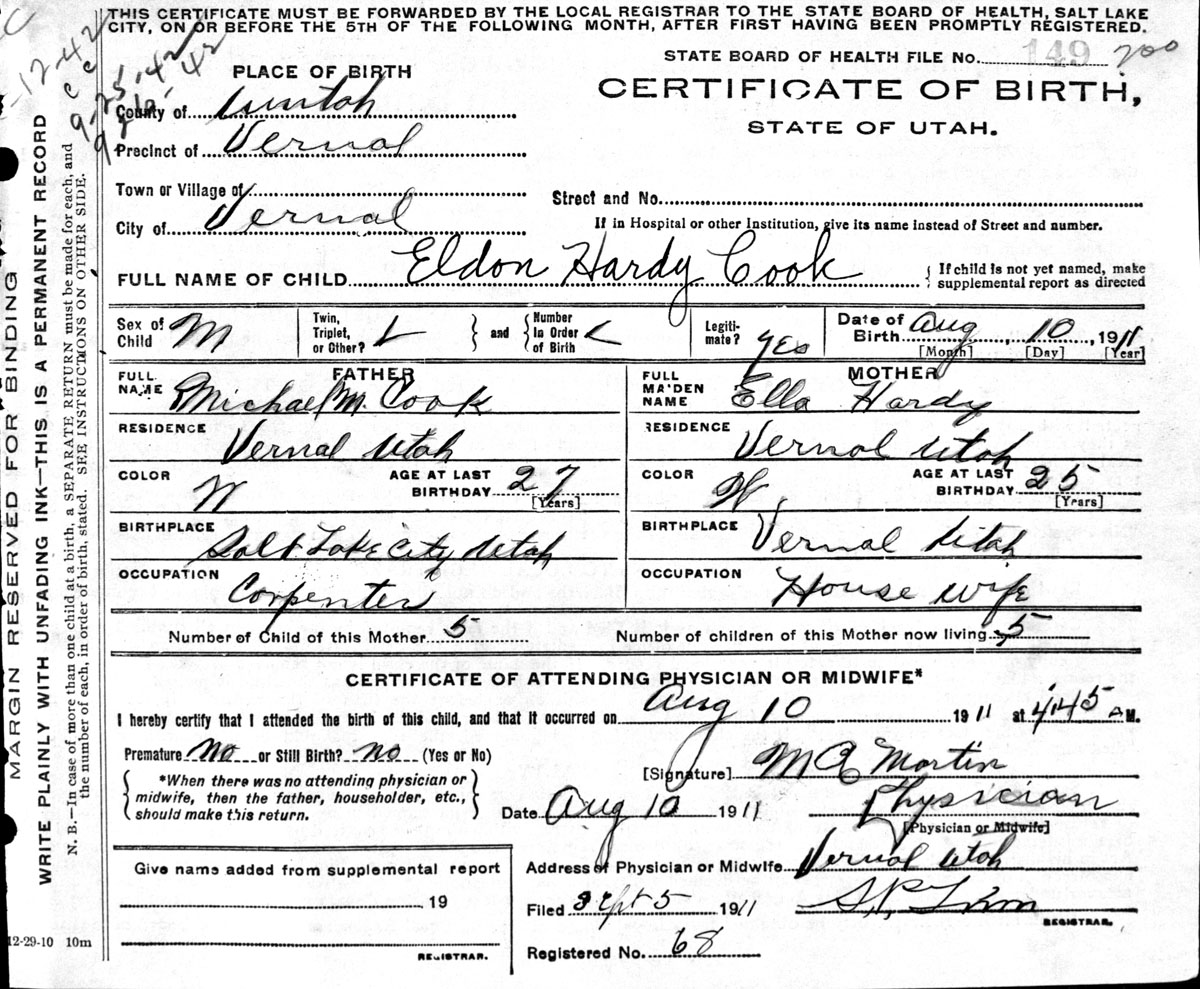 THIS CERTIFICATE MUST BE FORWARDED BY THE LOCAL REGISTRAR TO THE STATE BOARD OF HEALTH, SALT LAKE
CITY, ON OR BEFORE THE 5TH OF THE FOLLOWING MONTH, AFTER FIRST HAVING BEEN PROMPTLY REGISTERED.
STATE BOARD OF HEALTH FILE NO. 149 200
CERTIFICATE OF BIRTH,
STATE OF UTAH.
PLACE OF BIRTH
County of Uintah
Precinct of Vernal
Town or Village of
City of Vernal
Street and No.
If in Hospital or other Institution, give its name instead of Street and number.
FULL NAME OF CHILD Eldon Hardy Cook
If child is not yet named, make
supplemental report as directed
Sex of Child M
Twin, Triplet, or Other?
and
Number In Order of Birth
Legitimate? yes
Date of Birth Aug 10, 1911
[Month] [Day] [Year]
FATHER
FULL NAME Michael M. Cook
RESIDENCE Vernal Utah
COLOR W
AGE AT LAST BIRTHDAY 27
[Years]
BIRTHPLACE Salt Lake City Utah
OCCUPATION Carpenter
MOTHER
FULL MAIDEN NAME Ella Hardy
RESIDENCE Vernal Utah
COLOR W
AGE AT LAST BIRTHDAY 25
[Years]
BIRTHPLACE Vernal Utah
OCCUPATION House wife
Number of Child of this Mother 5
Number of children of this Mother now living 5
CERTIFICATE OF ATTENDING PHYSICIAN OR MIDWIFE*
I hereby certify that I attended the birth of this child, and that it occurred on Aug 10 1911 at 4:45 A M.
Premature No or Still Birth? No (Yes or No)
*When there was no attending physician or
midwife, then the father, householder, etc.,
should make this return.
[Signature] Martin
Date Aug 10 1911
Physician
[Physician or Midwife]
Address of Physician or Midwife Vernal Utah
Filed Sept 5 1911
REGISTRAR.
Registered No. 68
Give name added from supplemental report
19
REGISTRAR.
12-29-10 10m
MARGIN RESERVED FOR BINDING
WRITE PLAINLY WITH UNFADING INK—THIS IS A PERMANENT RECORD
N. B.—In case of more than one child at a birth, a SEPARATE RETURN must be made for each, and
the number of each, in order of birth, stated. SEE INSTRUCTIONS ON OTHER SIDE.